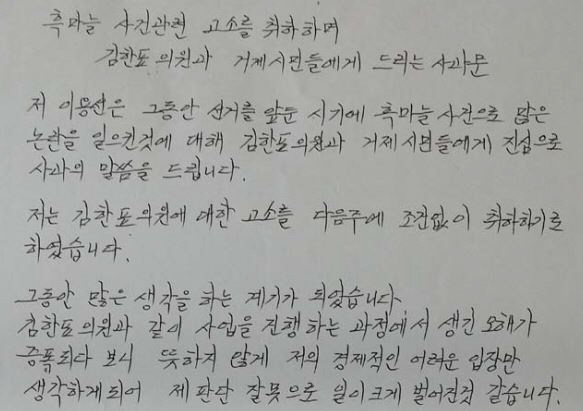 흑마늘 사건관련 고소를 취하하며
김한표의원과 거제시민들에게 드리는 사과문
저 이용선은 그동안 선거를 앞둔 시기에 흑마늘 사건으로 많은
논란을 일으킨것에 대해 김한표의원과 거제시민들에게 진심으로
사과의 말씀을 드립니다.
저는 김한표의원에 대한 고소를 다음주에 조건없이 취하하기로
하였습니다.
그동안 많은 생각을 하는 계기가 되었습니다
김한표의원과 같이 사업을 진행하는 과정에서 생긴 오해가
증폭되다 보니 뜻하지 않게 저의 경제적인 어려운 입장만
생각하게되어 제 판단 잘못으로 일이크게 벌어진것 같습니다.